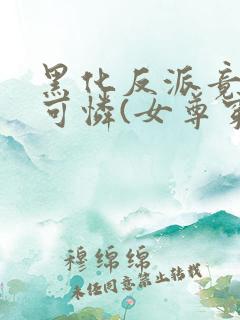 黑化反派竟
可怜(女尊穿
穆绵绵
未经同意禁止转载